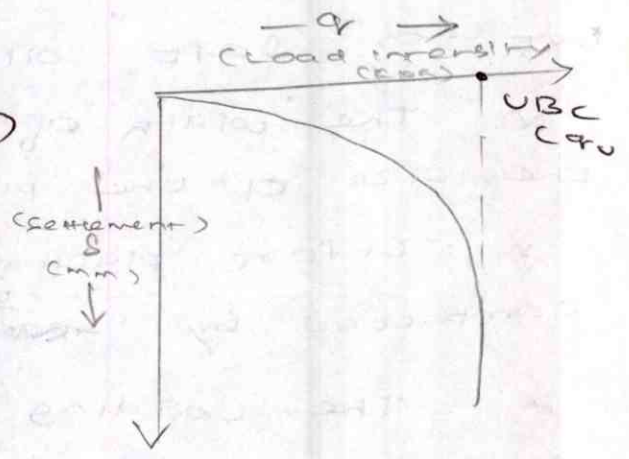 q →
(Load intensity)
(kPa)
UBC
(qu
(settlement)
δ
(mm)